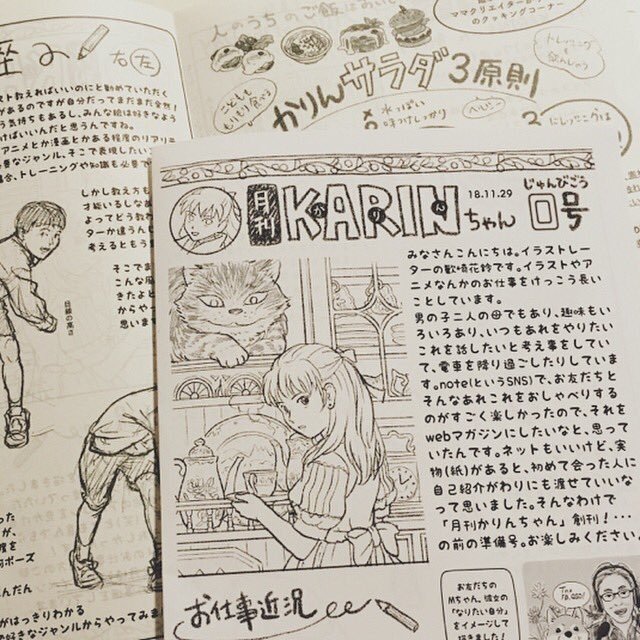 人のうちのご飯はおいし
ママクリエイターか
のクッキングコーナー
トレーニング
かりんサラダ3原則
ことし
もりもり食べる
水っぽい
味つけしっかり
ヘルシー
3
座のみ
右左
スト教えればいいのにと勧めていただく
があるのですが自分だってまだまだ全然!
う気持ちもあるし、みんな絵は好きなよう
けばいいんだと思うんですね。
アニメとか漫画とかある程度のリアリテ
要なジャンル。そこで表現したいこ
場合、トレーニングや知識も必要で
しかし教え方も
才能いるしなぁ
よってどう教わ
ターか違うんし
考えるともう
そこでま
こんな風
きたよと
からやっ
思います
目線の高さ
月刊
KARIN
かりん
ちゃん
18.11.29
じゅんびごう
0号
みなさんこんにちは。イラストレー
ターの歌崎花鈴です。イラストやア
ニメなんかのお仕事をけっこう長い
ことしています。
男の子二人の母でもあり、趣味もい
ろいろあり、いつもあれをやりたい
これを話したいと考え事をしてい
て、電車を降り過ごしたりしていま
す。note(というSNS)で、お友だちと
そんなあれこれをおしゃべりする
のがすごく楽しかったので、それを
webマガジンにしたいなと、思って
いたんです。ネットもいいけど、実
物(紙)があると、初めて会った人に
自己紹介がわりにも渡せていいな
って思いました。そんなわけで
「月刊かりんちゃん」創刊!・・・
の前の準備号。お楽しみください。
お仕事近況
お友だちの
Mちゃん、彼女の
「なりたい自分」
をイメージして
描きました!
った
が、
度を
的ポーズ
んだん
がはっきりわかる
好きなジャンルからやってみま